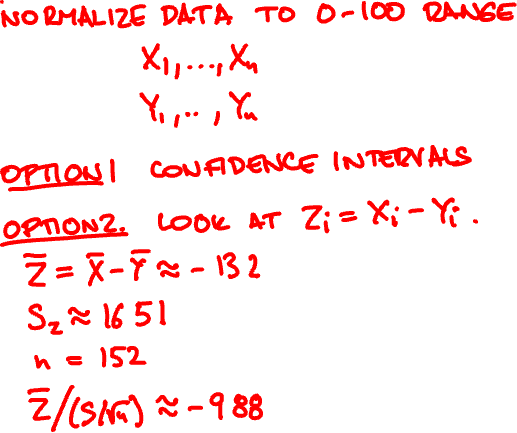 NORMALIZE DATA TO 0-100 RANGE
X₁,...,Xₙ
Y₁,..,Yₙ
OPTION 1 CONFIDENCE INTERVALS
OPTION 2. LOOK AT Zᵢ = Xᵢ - Yᵢ.
Z̅ = X̅ - Y̅ ≈ - 132
S_z ≈ 16 51
n = 152
Z̅/(S/√n) ≈ - 9 88